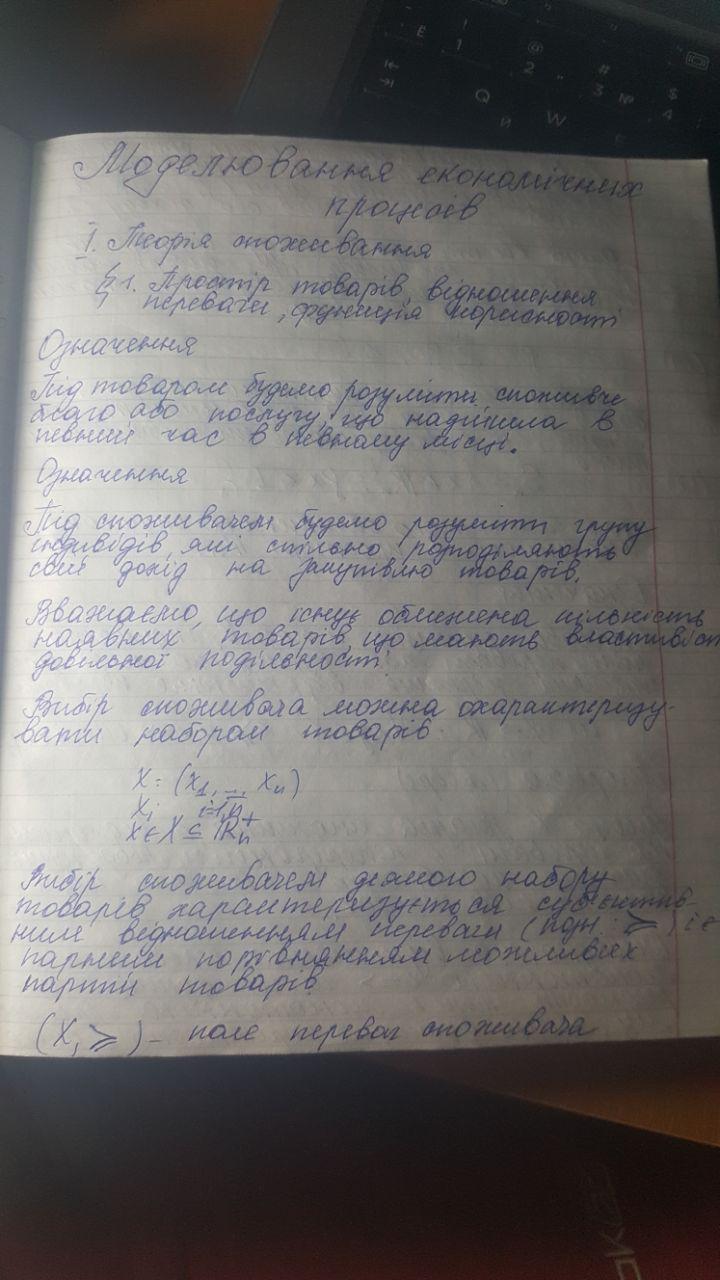 Моделювання економічних
процесів
I. Теорія споживання
§1. Простір товарів, відношення
переваги, функція корисності
Означення
Під товаром будемо розуміти споживче
благо або послугу, що надійшла в
певний час в певному місці.
Означення
Під споживачем будемо розуміти групу
індивідів, які спільно розподіляють
свій дохід на закупівлю товарів.
Вважаємо, що існує обмежена кількість
наявних товарів, що мають властивість
довільної подільності
Вибір споживача можна охарактеризу-
вати набором товарів
X = (x₁, ..., xₙ)
xᵢ i=1,n
x ∈ X ⊆ ℝₙ⁺
Вибір споживачем деякого набору
товарів характеризується суб'єктив-
ним відношенням переваги (позн. ≽) і є
парним порівнянням можливих
партій товарів
(X, ≽) - поле переваг споживача
Q
W
E
Й
1
2
3
4
@
#
№
$
!
Ё